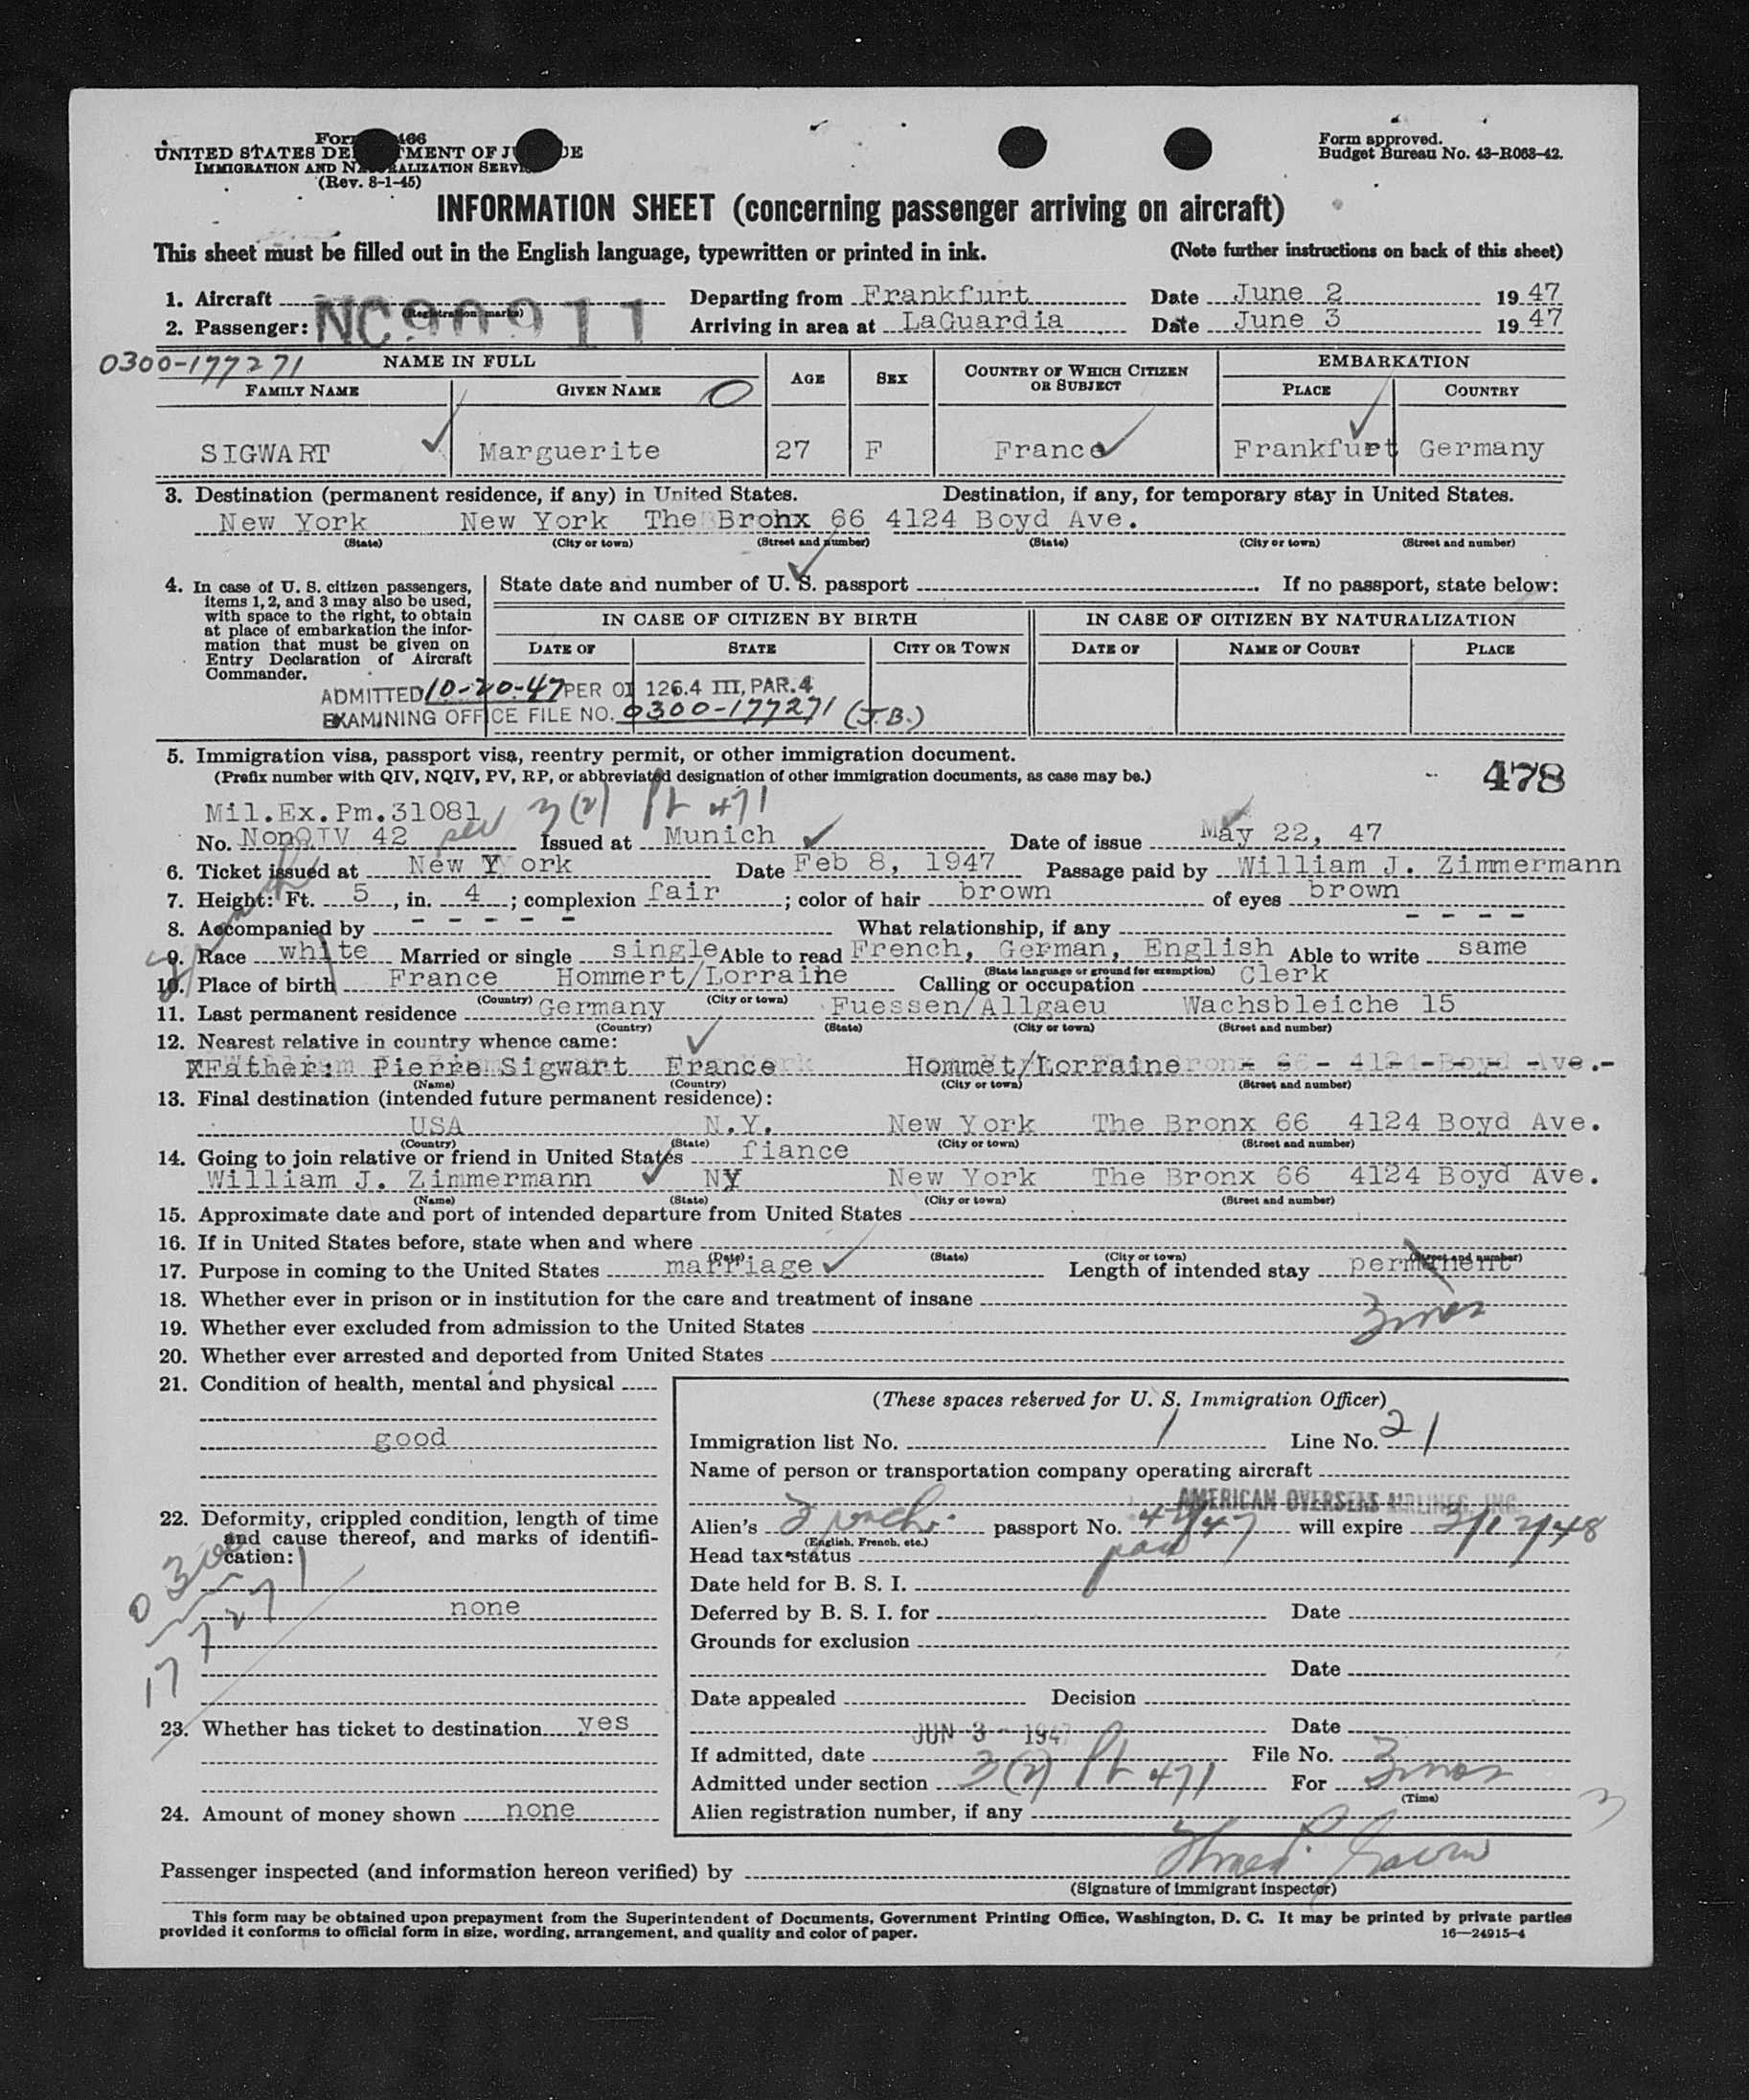 Form 466
UNITED STATES DEPARTMENT OF JUSTICE
IMMIGRATION AND NATURALIZATION SERVICE
(Rev. 8-1-45)
Form approved.
Budget Bureau No. 43-R063-42.
INFORMATION SHEET (concerning passenger arriving on aircraft)
This sheet must be filled out in the English language, typewritten or printed in ink. (Note further instructions on back of this sheet)
1. Aircraft NC90911 Departing from Frankfurt Date June 2 1947
(Registration marks)
2. Passenger: Arriving in area at LaGuardia Date June 3 1947
0300-177271 NAME IN FULL AGE SEX COUNTRY OF WHICH CITIZEN OR SUBJECT EMBARKATION
FAMILY NAME GIVEN NAME PLACE COUNTRY
SIGWART Marguerite 27 F France Frankfurt Germany
3. Destination (permanent residence, if any) in United States. Destination, if any, for temporary stay in United States.
New York New York The Bronx 66 4124 Boyd Ave.
(State) (City or town) (Street and number) (State) (City or town) (Street and number)
4. In case of U. S. citizen passengers, items 1, 2, and 3 may also be used, with space to the right, to obtain at place of embarkation the information that must be given on Entry Declaration of Aircraft Commander.
State date and number of U. S. passport If no passport, state below:
IN CASE OF CITIZEN BY BIRTH IN CASE OF CITIZEN BY NATURALIZATION
DATE OF STATE CITY OR TOWN DATE OF NAME OF COURT PLACE
ADMITTED 10-20-47 PER OI 126.4 III, PAR. 4
EXAMINING OFFICE FILE NO. 0300-177271 (J.B.)
5. Immigration visa, passport visa, reentry permit, or other immigration document.
(Prefix number with QIV, NQIV, PV, RP, or abbreviated designation of other immigration documents, as case may be.) 478
Mil.Ex.Pm.31081 3(2) Pt 471
No. NonQIV 42 Issued at Munich Date of issue May 22, 47
6. Ticket issued at New York Date Feb 8, 1947 Passage paid by William J. Zimmermann
7. Height: Ft. 5, in. 4; complexion fair; color of hair brown of eyes brown
8. Accompanied by - - - - - What relationship, if any - - - -
9. Race white Married or single single Able to read French, German, English Able to write same
(State language or ground for exemption)
10. Place of birth France Hommert/Lorraine Calling or occupation Clerk
(Country) (City or town)
11. Last permanent residence Germany Fuessen/Allgaeu Wachsbleiche 15
(Country) (State) (City or town) (Street and number)
12. Nearest relative in country whence came:
Father: Pierre Sigwart France Hommet/Lorraine - - - - - - -
(Name) (Country) (City or town) (Street and number)
13. Final destination (intended future permanent residence):
USA N.Y. New York The Bronx 66 4124 Boyd Ave.
(Country) (State) (City or town) (Street and number)
14. Going to join relative or friend in United States fiance
William J. Zimmermann NY New York The Bronx 66 4124 Boyd Ave.
(Name) (State) (City or town) (Street and number)
15. Approximate date and port of intended departure from United States
16. If in United States before, state when and where
(Date) (State) (City or town) (Street and number)
17. Purpose in coming to the United States marriage Length of intended stay permanent
18. Whether ever in prison or in institution for the care and treatment of insane 3 mos
19. Whether ever excluded from admission to the United States
20. Whether ever arrested and deported from United States
21. Condition of health, mental and physical
good
22. Deformity, crippled condition, length of time and cause thereof, and marks of identification:
0300
177271
none
23. Whether has ticket to destination yes
24. Amount of money shown none
(These spaces reserved for U. S. Immigration Officer)
Immigration list No. 1 Line No. 21
Name of person or transportation company operating aircraft
AMERICAN OVERSEAS AIRLINES, INC.
Alien's French passport No. will expire
(English, French, etc.)
Head tax status
Date held for B. S. I.
Deferred by B. S. I. for Date
Grounds for exclusion
Date
Date appealed Decision
Date
If admitted, date JUN 3 - 1947 File No.
Admitted under section 3(2) Pt 471 For 3 mos
(Time)
Alien registration number, if any
Passenger inspected (and information hereon verified) by
(Signature of immigrant inspector)
This form may be obtained upon prepayment from the Superintendent of Documents, Government Printing Office, Washington, D. C. It may be printed by private parties
provided it conforms to official form in size, wording, arrangement, and quality and color of paper. 16—24915-4